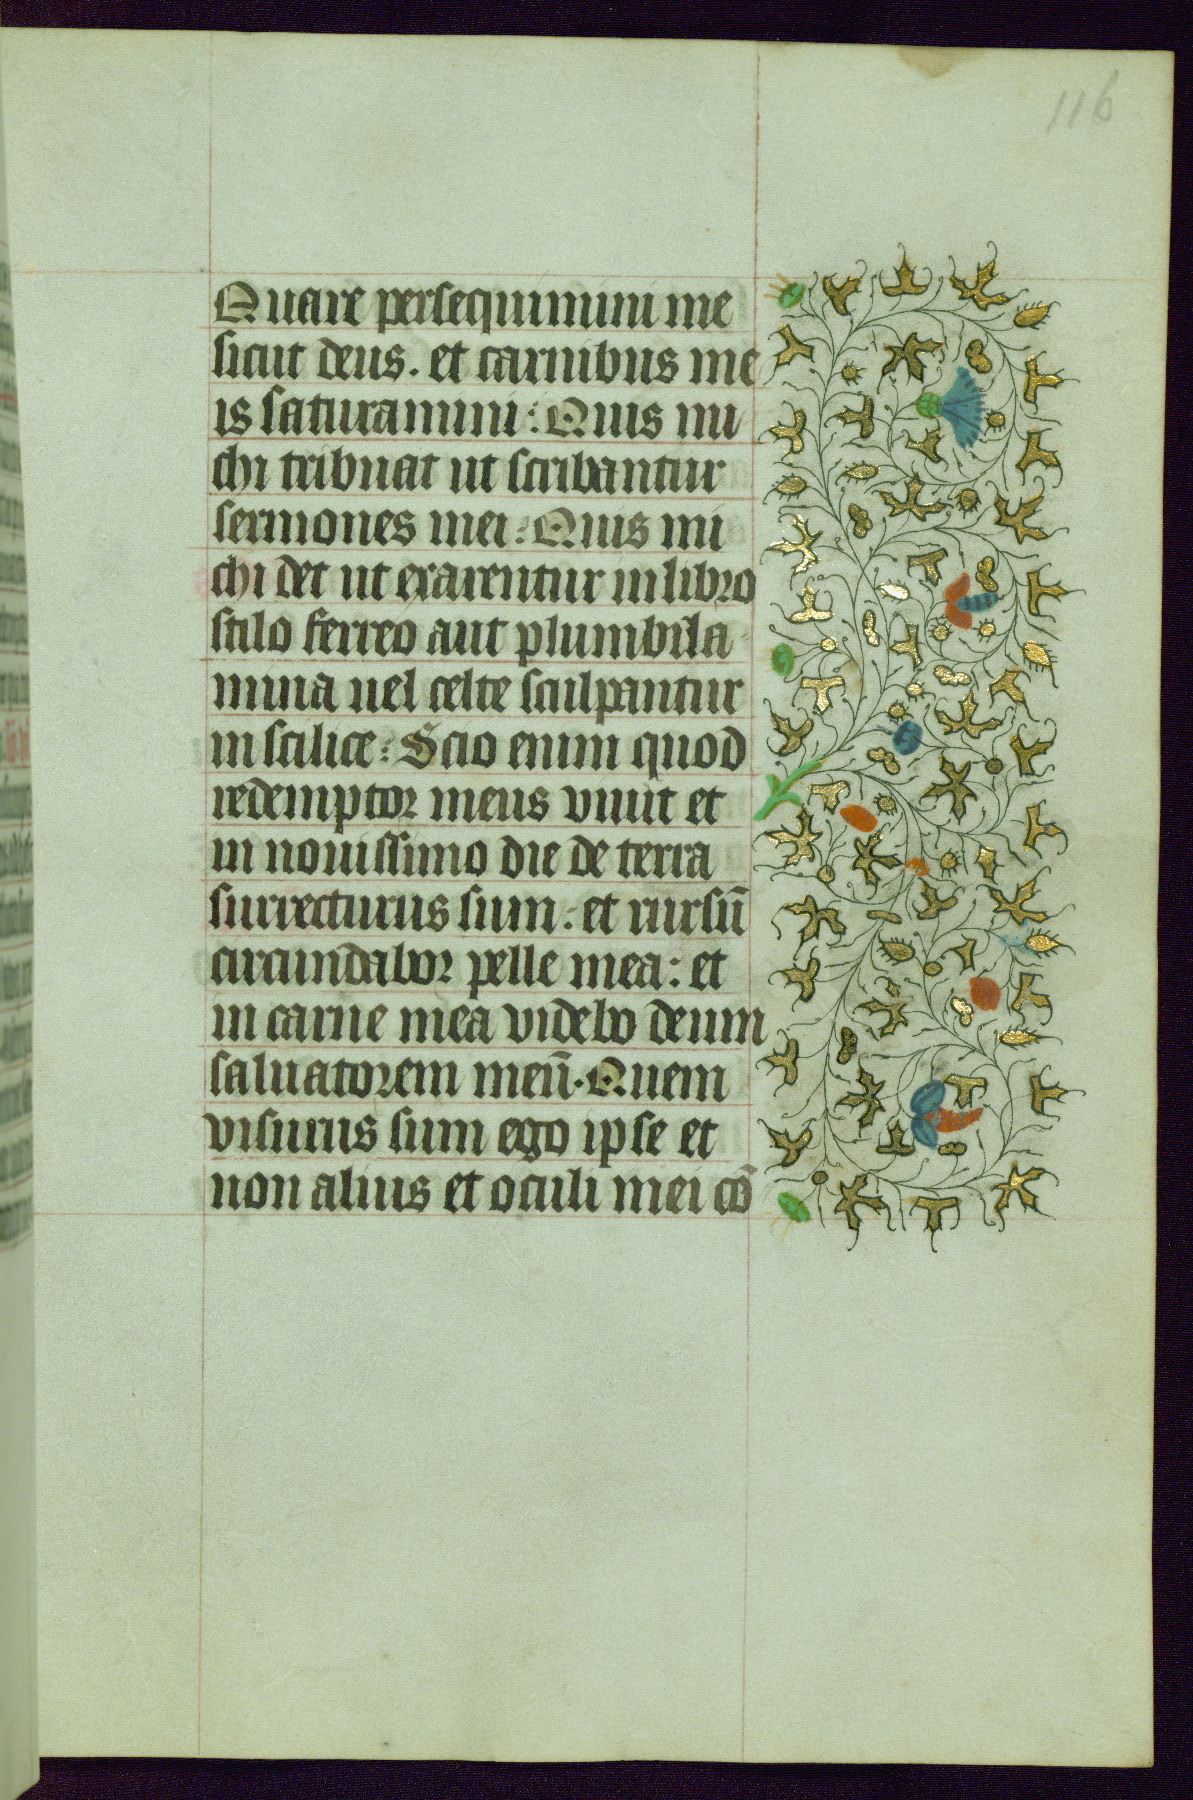 116
Quare persequimini me
sicut deus. et carnibus me
is saturamini: Quis mi
chi tribuat ut scribantur
sermones mei: Quis mi
chi det ut exarentur in libro
stilo ferreo aut plumbi la
mina uel celte sculpantur
in scilice: Scio enim quod
redemptor meus viuit et
in nouissimo die de terra
surrecturus sum: et rursū
circundabor pelle mea: et
in carne mea videbo deum
saluatorem meū. Quem
visurus sum ego ipse et
non alius et oculi mei cō